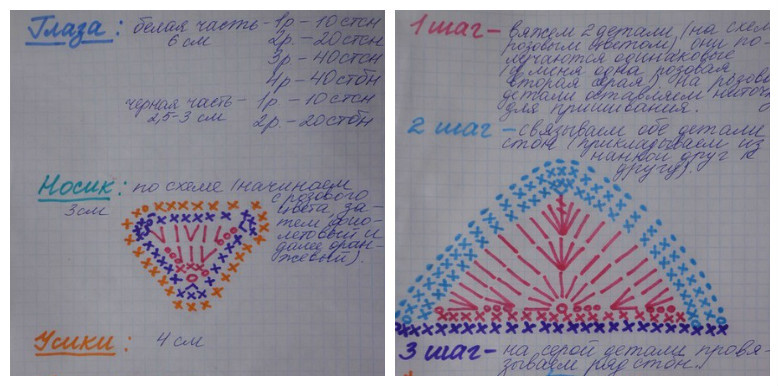 Глаза: белая часть - 1р - 10 стсн
6 см 2р. - 20 стсн
3р - 40 стсн
4р - 40 стбн
черная часть - 1р. - 10 стсн
2,5-3 см 2р. - 20 стбн
Носик: по схеме (начинаем
3 см с розового
цвета, за-
тем фио-
летовый и
далее оран-
жевый).
Усики: 4 см
1 шаг - вяжем 2 детали (на схеме
розовым цветом), они по-
лучаются одинаковые
(у меня одна розовая
вторая серая). На розовой
детали оставляем ниточку
для пришивания.
2 шаг - связываем обе детали
стбн (прикладываем из
нанкой друг к
другу).
3 шаг - на серой детали провя-
зываем ряд стбн.